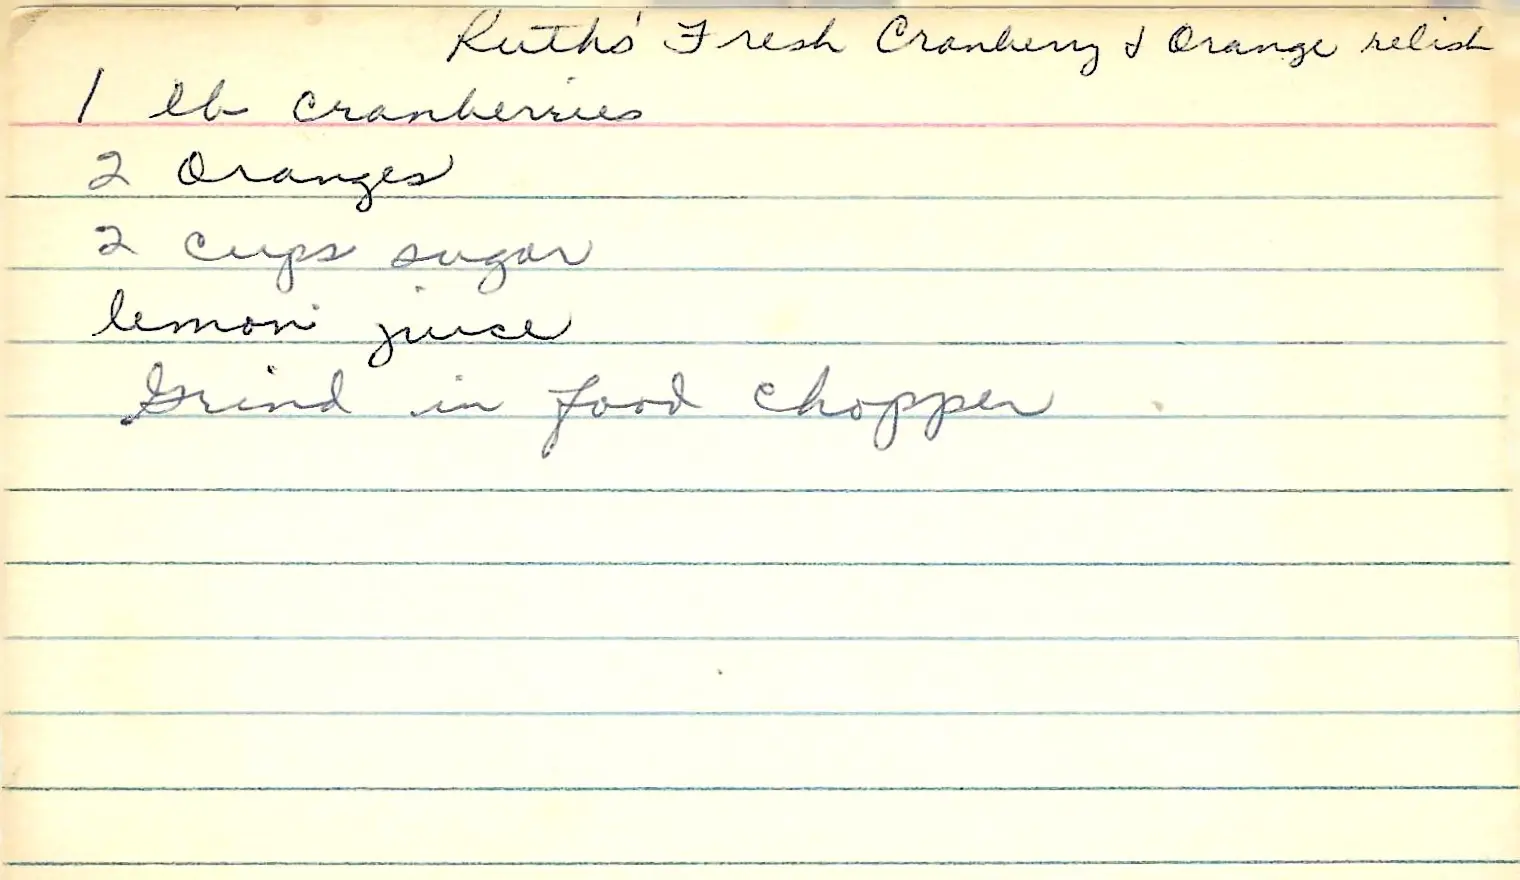 Ruths' Fresh Cranberry & Orange relish
1 lb cranberries
2 Oranges
2 cups sugar
lemon juice
Grind in food chopper